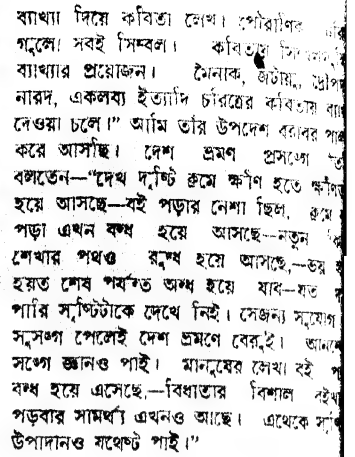 ব্যাখ্যা দিয়ে কবিতা লেখ। পৌরাণিক
গুলো সবই সিম্বল। কবিতায়
ব্যাখ্যার প্রয়োজন। মৈনাক, জটায়ু,
নারদ, একলব্য ইত্যাদি চরিত্রের কবিতায়
দেওয়া চলে।” আমি তাঁর উপদেশ বরাবর
করে আসছি। দেশ ভ্রমণ প্রসঙ্গে
বলতেন—“দেখ দৃষ্টি ক্রমে ক্ষীণ হতে
হয়ে আসছে—বই পড়ার নেশা ছিল,
পড়া এখন বন্ধ হয়ে আসছে—নতুন
শেখার পথও রুদ্ধ হয়ে আসছে,—ভয়
হয়ত শেষ পর্যন্ত অন্ধ হয়ে যাব—যত
পারি সৃষ্টিটাকে দেখে নিই। সেজন্য সুযোগ
সুসঙ্গ পেলেই দেশ ভ্রমণে বেরুই।
সঙ্গে জ্ঞানও পাই। মানুষের লেখা বই
বন্ধ হয়ে এসেছে,—বিধাতার বিশাল
পড়বার সামর্থ্য এখনও আছে। এথেকে
উপাদানও যথেষ্ট পাই।”